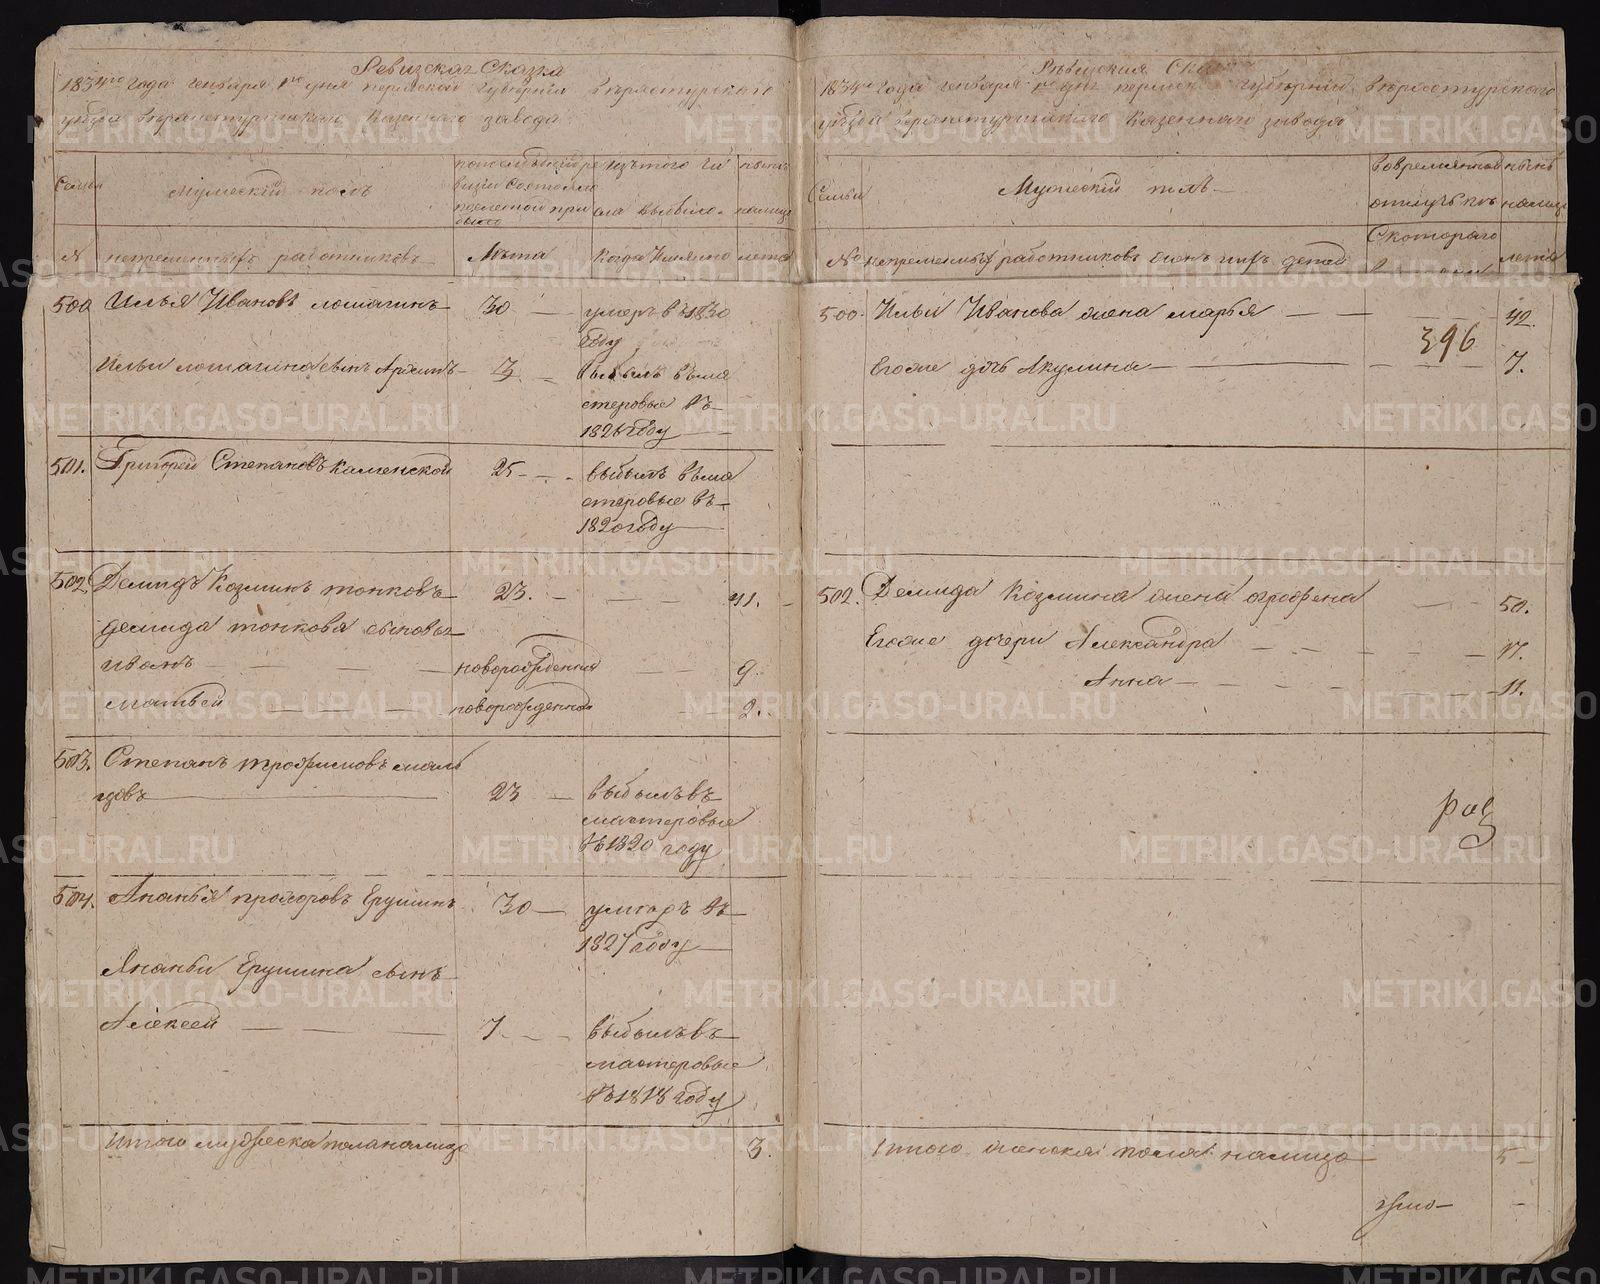 Ревизская Сказка
1834го года генваря 1го дня пермской губернии верхотурского
уезда казенного завода
Семьи
Мужеский полъ
изъ того чи
сла выбыло
№
непременныхъ работниковъ
Лѣта
Когда Имянно
лета
500
Илья Ивановъ лошагинъ
30
умеръ въ 1830
году
Ильи лошагина сынъ
3
выбылъ в ма
стеровые въ
году
501.
Григорей Степановъ каменской
25
выбылъ в ма
стеровые въ
1820 году
502
Демидъ Козминъ топковъ
23.
41.
демида топкова сыновья
иванъ
новорожденной
9.
матвей
новорожденной
2.
503.
Степанъ трофимовъ маль
цовъ
23
выбылъ въ
мастеровые
въ 1820 году
504.
Ананья прохоровъ Ерушинъ
30
умеръ въ
1827 году
Ананьи Ерушина сынъ
Алексей
7
выбылъ въ
мастеровые
въ 1818 году
Итого мужеска пола налицо
3.
Ревиския
1834го года генваря 1го дня губернии верхотурского
уезда казенного завода
Семьи
полъ
Во временной
отлучке
ныне
налицо
№
непременныхъ работниковъ жены ихъ детей
С котораго
лета
500
Ильи Иванова жена марья
42.
396
Егоже дочь Акулина
7.
502.
Демида Козмина жена огрофена
50.
Егоже дочери Александра
17.
Анна
11.
Итого женска пола налицо
5